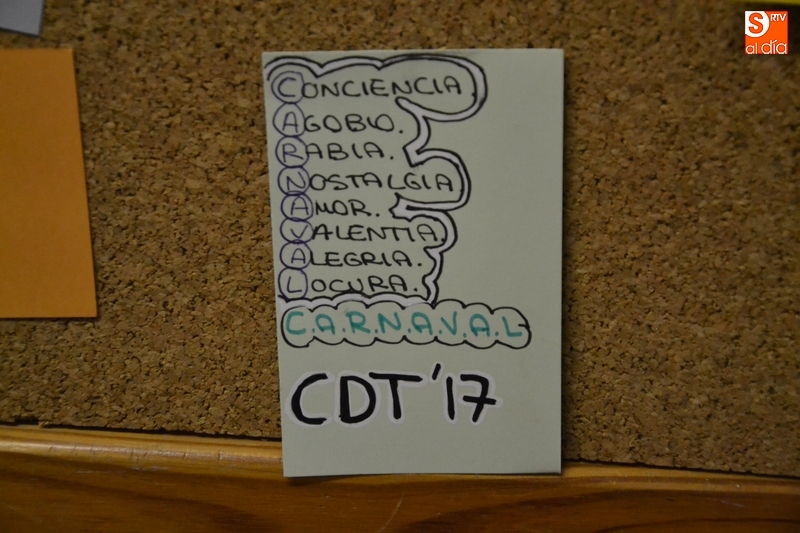 CONCIENCIA.
AGOBIO.
RABIA.
NOSTALGIA
AMOR.
VALENTIA
ALEGRIA.
LOCURA.
C.A.R.N.A.V.A.L
CDT'17
S RTV
al día